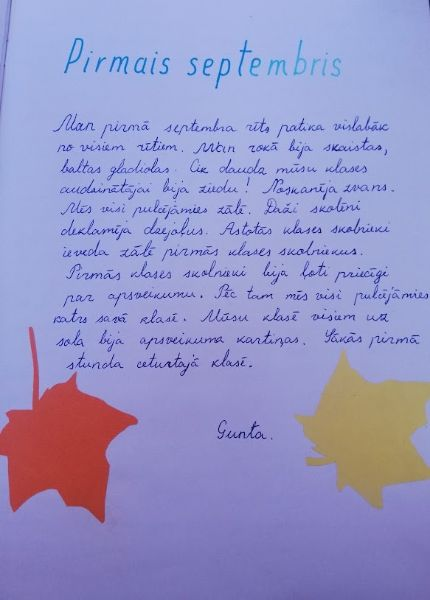 Pirmais septembris
Man pirmā septembra rīts patika vislabāk
no visiem rītiem. Man rokā bija skaistas,
baltas gladiolas. Cik daudz mūsu klases
audzinātājai bija ziedu! Noskanēja zvans.
Mēs visi pulcējāmies zālē. Daži skolēni
deklamēja dzejoļus. Astotās klases skolnieki
ieveda zālē pirmās klases skolniekus.
Pirmās klases skolnieki bija ļoti priecīgi
par apsveikumu. Pēc tam mēs visi pulcējāmies
katrs savā klasē. Mūsu klasē visiem uz
sola bija apsveikuma kartiņas. Sākās pirmā
stunda ceturtajā klasē.
Gunta.